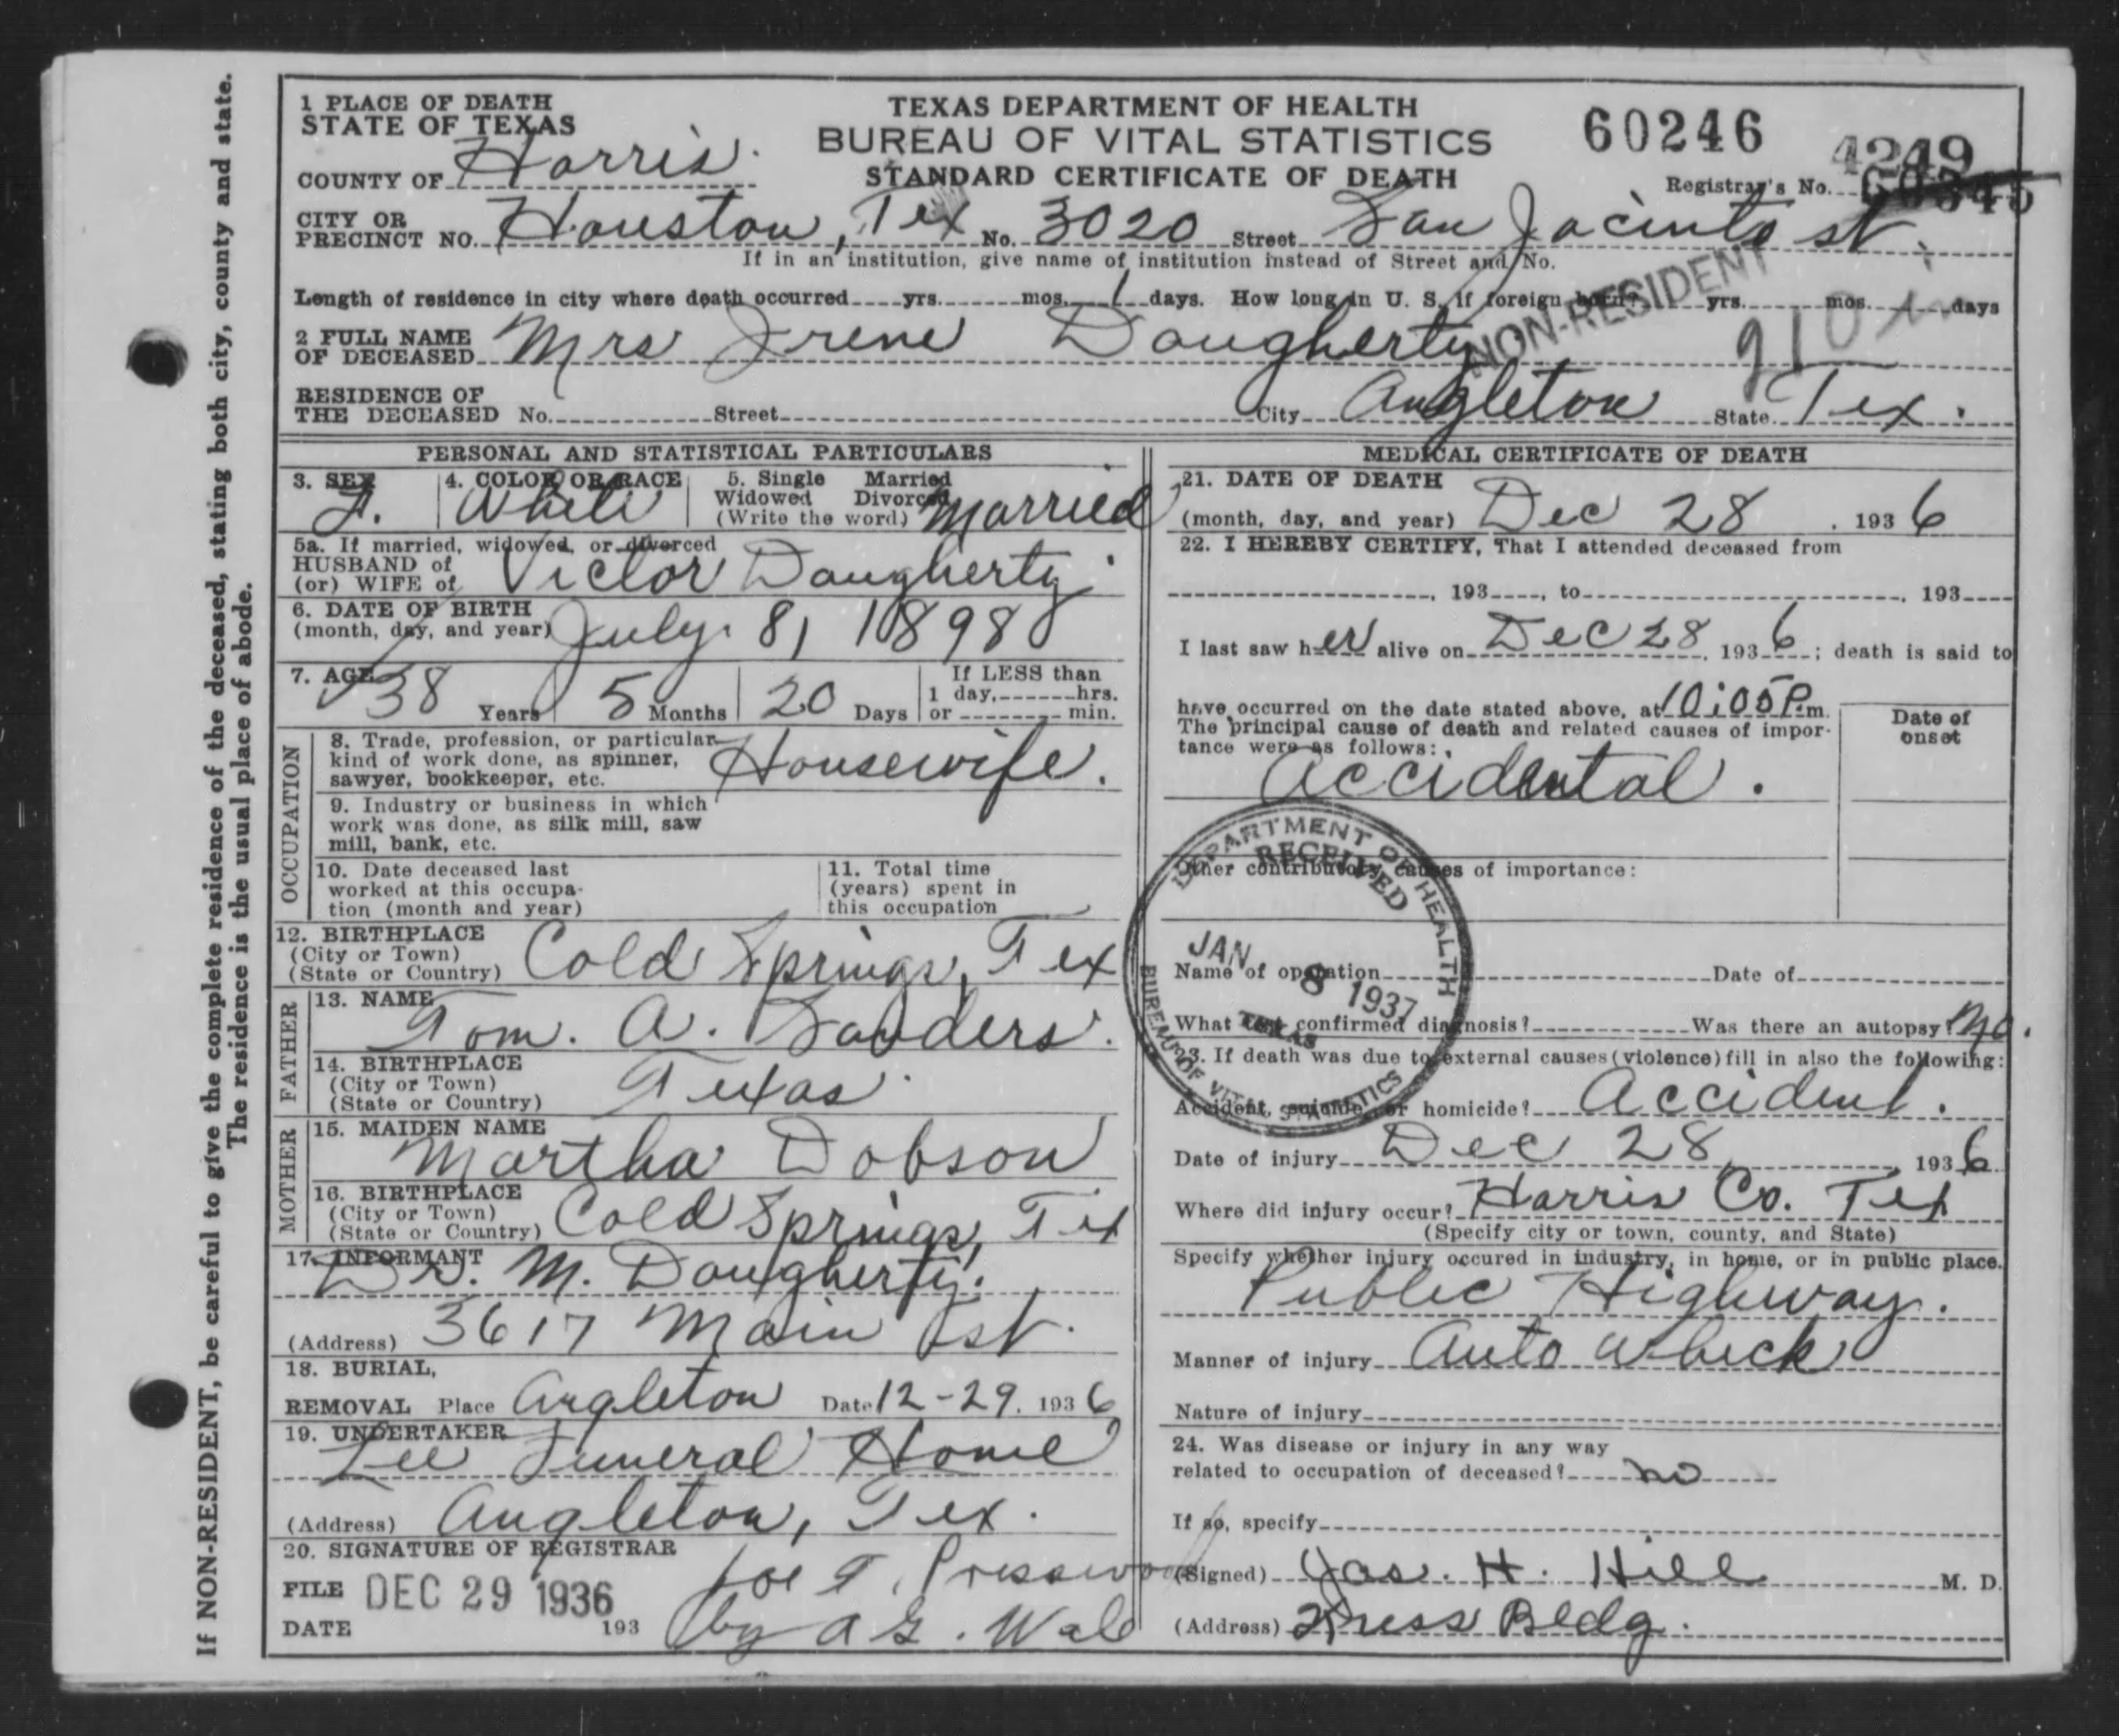 If NON-RESIDENT, be careful to give the complete residence of the deceased, stating both city, county and state.
The residence is the usual place of abode.
1 PLACE OF DEATH
STATE OF TEXAS
COUNTY OF Harris.
TEXAS DEPARTMENT OF HEALTH
BUREAU OF VITAL STATISTICS
STANDARD CERTIFICATE OF DEATH
60246
4249
Registrar's No.
CITY OR
PRECINCT NO. Houston, Tex No. 3020 Street San Jacinto st.
If in an institution, give name of institution instead of Street and No.
Length of residence in city where death occurred yrs. mos. 1 days. How long in U. S. if foreign born? yrs. mos. days
NON-RESIDENT
2 FULL NAME
OF DECEASED Mrs Irene Daugherty
210
RESIDENCE OF
THE DECEASED No. Street City Angleton State Tex.
PERSONAL AND STATISTICAL PARTICULARS
3. SEX F.
4. COLOR OR RACE White
5. Single Married
Widowed Divorced
(Write the word) Married
5a. If married, widowed, or divorced
HUSBAND of
(or) WIFE of Victor Daugherty
6. DATE OF BIRTH
(month, day, and year) July 8, 1898
7. AGE 38 Years 5 Months 20 Days
If LESS than
1 day, hrs.
or min.
OCCUPATION
8. Trade, profession, or particular
kind of work done, as spinner,
sawyer, bookkeeper, etc. Housewife.
9. Industry or business in which
work was done, as silk mill, saw
mill, bank, etc.
10. Date deceased last
worked at this occupa-
tion (month and year)
11. Total time
(years) spent in
this occupation
12. BIRTHPLACE
(City or Town)
(State or Country) Cold Springs, Tex
FATHER
13. NAME
Tom. A. Sanders.
14. BIRTHPLACE
(City or Town)
(State or Country) Texas
MOTHER
15. MAIDEN NAME
Martha Dobson
16. BIRTHPLACE
(City or Town)
(State or Country) Cold Springs, Tex
17. INFORMANT
Dr. M. Daugherty.
(Address) 3617 Main St.
18. BURIAL,
REMOVAL Place Angleton Date 12-29, 1936
19. UNDERTAKER
Lee Funeral Home
(Address) Angleton, Tex.
20. SIGNATURE OF REGISTRAR
FILE DEC 29 1936
DATE 193
Joe T. Presswood
by A G. Wald
MEDICAL CERTIFICATE OF DEATH
21. DATE OF DEATH
(month, day, and year) Dec 28, 1936
22. I HEREBY CERTIFY, That I attended deceased from
, 193 , to , 193
I last saw her alive on Dec 28, 1936; death is said to
have occurred on the date stated above, at 10:05 P.m.
The principal cause of death and related causes of impor-
tance were as follows:
Date of
onset
Accidental.
Other contributory causes of importance:
DEPARTMENT OF HEALTH
RECEIVED
JAN 8 1937
TEXAS
BUREAU OF VITAL STATISTICS
Name of operation Date of
What test confirmed diagnosis? Was there an autopsy? No.
23. If death was due to external causes (violence) fill in also the following:
Accident, suicide, or homicide? Accident.
Date of injury Dec 28, 1936
Where did injury occur? Harris Co. Tex
(Specify city or town, county, and State)
Specify whether injury occured in industry, in home, or in public place.
Public Highway.
Manner of injury Auto Wreck
Nature of injury
24. Was disease or injury in any way
related to occupation of deceased? no
If so, specify
(Signed) Jas. H. Hill M. D.
(Address) Kress Bldg.